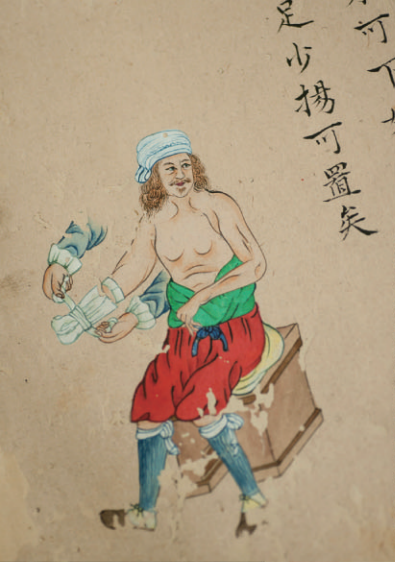 可下
足少揚可置矣